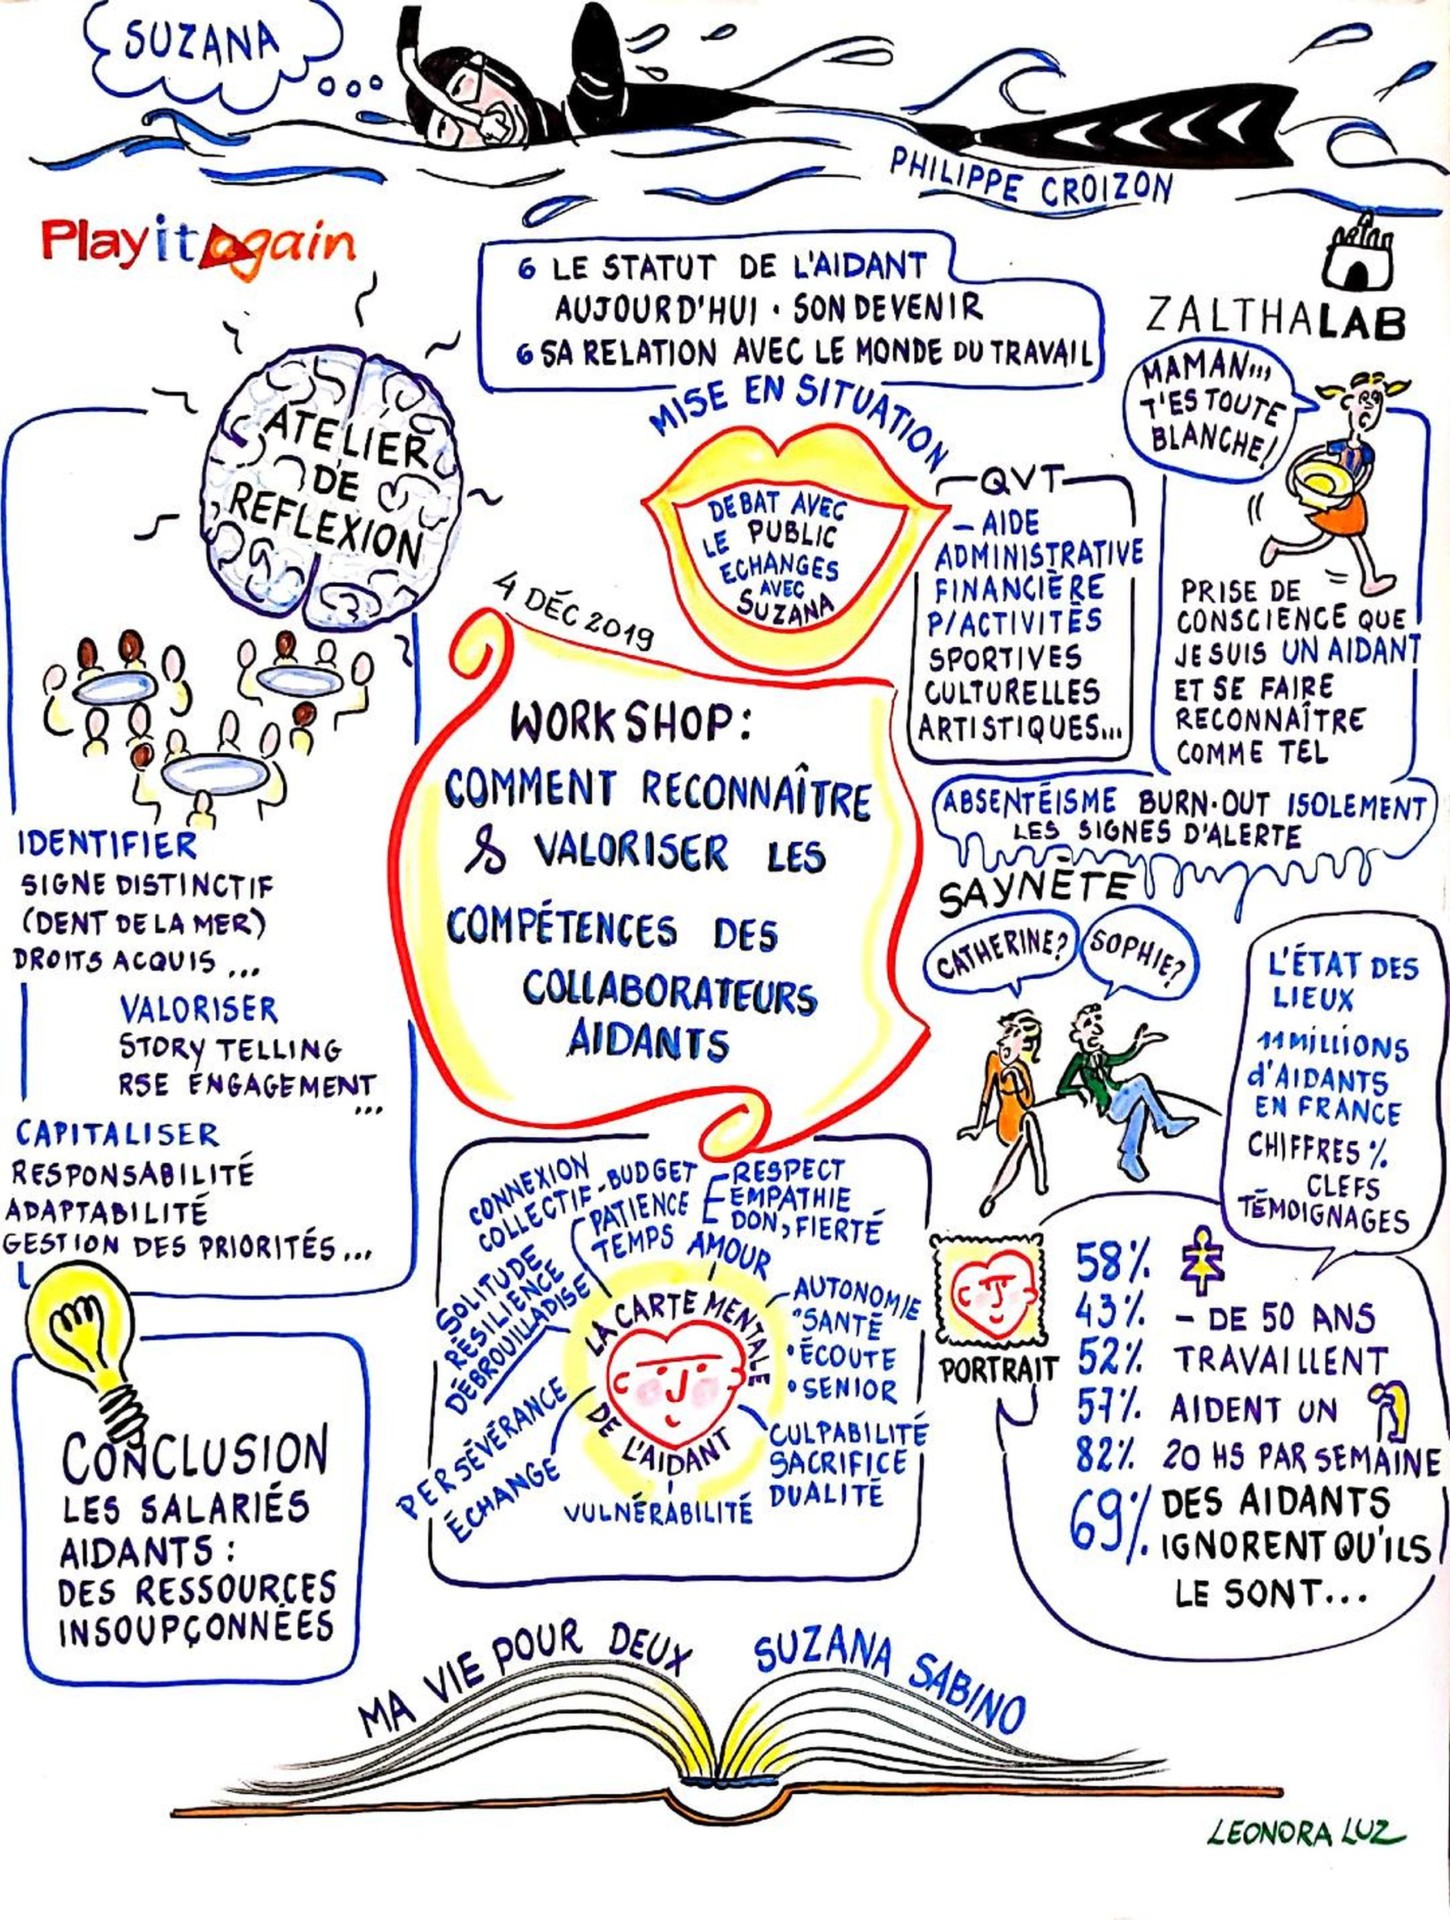 SUZANA
PHILIPPE CROIZON
Play it again
6 LE STATUT DE L'AIDANT
AUJOURD'HUI • SON DEVENIR
6 SA RELATION AVEC LE MONDE DU TRAVAIL
ZALTHALAB
MAMAN...
T'ES TOUTE
BLANCHE!
ATELIER
DE
REFLEXION
MISE EN SITUATION
DEBAT AVEC
LE PUBLIC
ECHANGES
AVEC
SUZANA
QVT
- AIDE
ADMINISTRATIVE
FINANCIÈRE
P/ACTIVITÉS
SPORTIVES
CULTURELLES
ARTISTIQUES...
PRISE DE
CONSCIENCE QUE
JE SUIS UN AIDANT
ET SE FAIRE
RECONNAÎTRE
COMME TEL
4 DÉC 2019
WORKSHOP:
COMMENT RECONNAÎTRE
& VALORISER LES
COMPÉTENCES DES
COLLABORATEURS
AIDANTS
ABSENTÉISME BURN-OUT ISOLEMENT
LES SIGNES D'ALERTE
IDENTIFIER
SIGNE DISTINCTIF
(DENT DE LA MER)
DROITS ACQUIS ...
VALORISER
STORY TELLING
RSE ENGAGEMENT
...
CAPITALISER
RESPONSABILITÉ
ADAPTABILITÉ
GESTION DES PRIORITÉS...
SAYNÈTE
CATHERINE?
SOPHIE?
L'ÉTAT DES
LIEUX
11 MILLIONS
d'AIDANTS
EN FRANCE
CHIFFRES %
CLEFS
TÉMOIGNAGES
CONNEXION
COLLECTIF
- BUDGET
PATIENCE
TEMPS
RESPECT
EMPATHIE
DON, FIERTÉ
AMOUR
SOLITUDE
RÉSILIENCE
DÉBROUILLADISE
LA CARTE MENTALE
DE L'AIDANT
- AUTONOMIE
"SANTÉ
• ÉCOUTE
• SENIOR
PERSÉVÉRANCE
ÉCHANGE
VULNÉRABILITÉ
CULPABILITÉ
SACRIFICE
DUALITÉ
PORTRAIT
58%
43% - DE 50 ANS
52% TRAVAILLENT
57% AIDENT UN
82% 20 HS PAR SEMAINE
69% DES AIDANTS
IGNORENT QU'ILS
LE SONT...
CONCLUSION
LES SALARIÉS
AIDANTS :
DES RESSOURCES
INSOUPÇONNÉES
MA VIE POUR DEUX
SUZANA SABINO
LEONORA LUZ